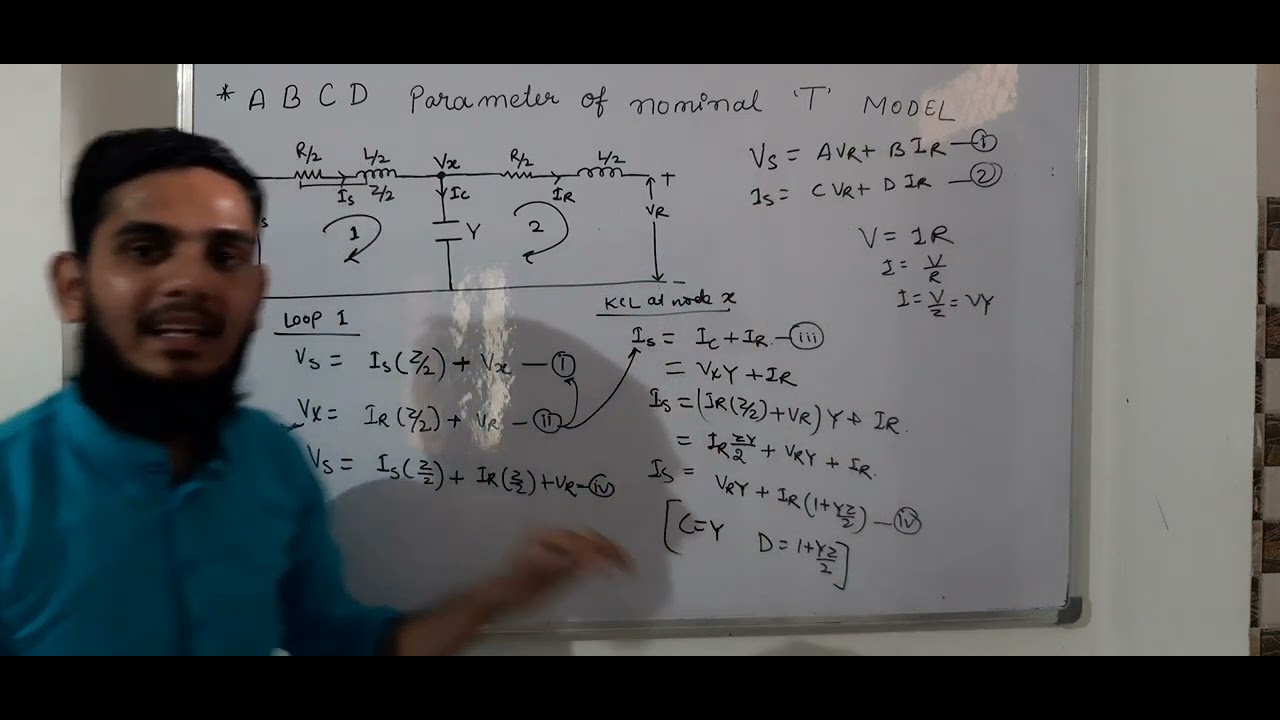 * A B C D Parameter of nominal 'T' MODEL
R/2 L/2 Vx R/2 L/2 +
Is Z/2 Ic IR VR
s 1 Y 2
-
Vs = AVR + BIR — 1
Is = CVR + DIR — 2
V = IR
I = V/R
I = V/Z = VY
LOOP 1
Vs = Is(Z/2) + Vx — i
Vx = IR(Z/2) + VR — ii
Vs = Is(Z/2) + IR(Z/2) + VR — iv
KCL at node x
Is = Ic + IR — iii
= VxY + IR
Is = (IR(Z/2) + VR) Y + IR.
= IR ZY/2 + VRY + IR.
Is = VRY + IR(1 + YZ/2) — iv
[C=Y D = 1 + YZ/2]